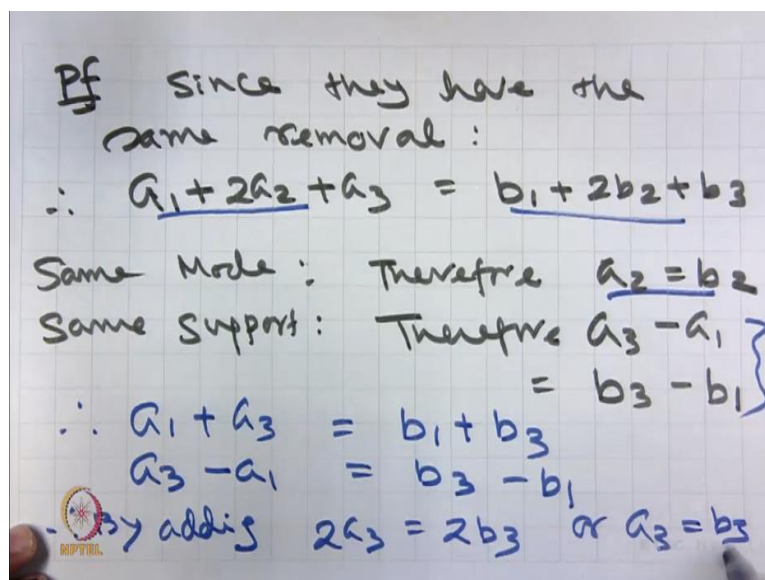 Pf Since they have the
same removal :
∴ a1 + 2a2 + a3 = b1 + 2b2 + b3
Same Mode : Therefore a2 = b2
Same Support : Therefore a3 - a1
= b3 - b1
∴ a1 + a3 = b1 + b3
a3 - a1 = b3 - b1
By adding 2a3 = 2b3 or a3 = b3
NPTEL